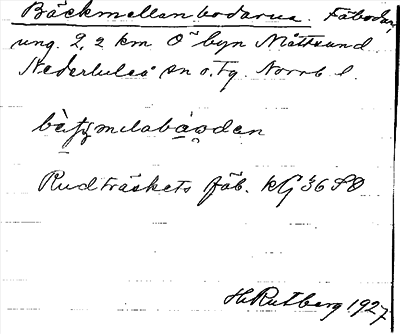 Bäckmellanbodarna. Fäbodar,
ung. 2,2 km Ö byn Måttsund.
Nederluleå sn o. tg. Norrb. l.
Rudträskets fäb. kG 36 SO
H. Rutberg 1927